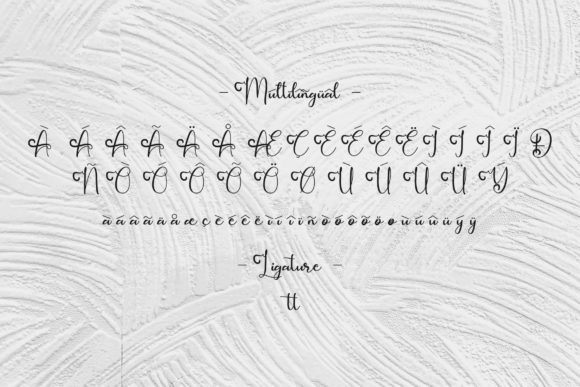 - Multilingual -
À Á Â Ã Ä Å Æ Ç È É Ê Ë Ì Í Î Ï Ð
Ñ Ò Ó Ô Õ Ö Ø Ù Ú Û Ü Ý
à á â ã ä å æ ç è é ê ë ì í î ï ñ ò ó ô õ ö ø ù ú û ü ý ÿ
- Ligature -
tt